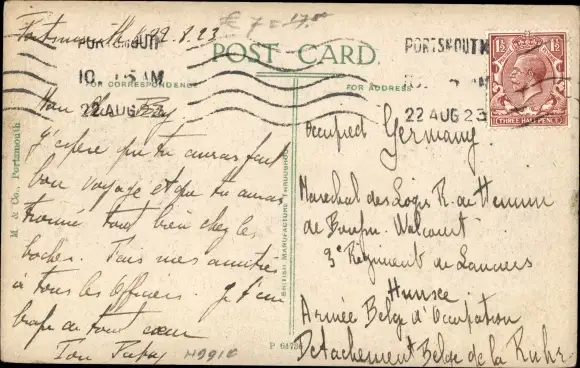 Portsmouth 22.8.23
£ 7 = 17.00
POST CARD.
FOR CORRESPONDENCE
FOR ADDRESS
PORTSMOUTH
10 15 AM
22 AUG 23
PORTSMOUTH
AM
22 AUG 23
1½ 1½
THREE HALFPENCE
Mon
J'espère que tu auras fait
bon voyage et que tu auras
trouvé tout bien chez les
boches. Fais mes amitiés
à tous les officiers Je t'em
brasse de tout cœur
Ton Papa
H9910
Occupied Germany
Marechal des Logis R. de Hemme
de Walcourt
3e Régiment de Lanciers
Armée Belge d'Occupation
Detachement Belge de la Ruhr
M. & Co., Portsmouth
BRITISH MANUFACTURE THROUGHOUT
P 64736